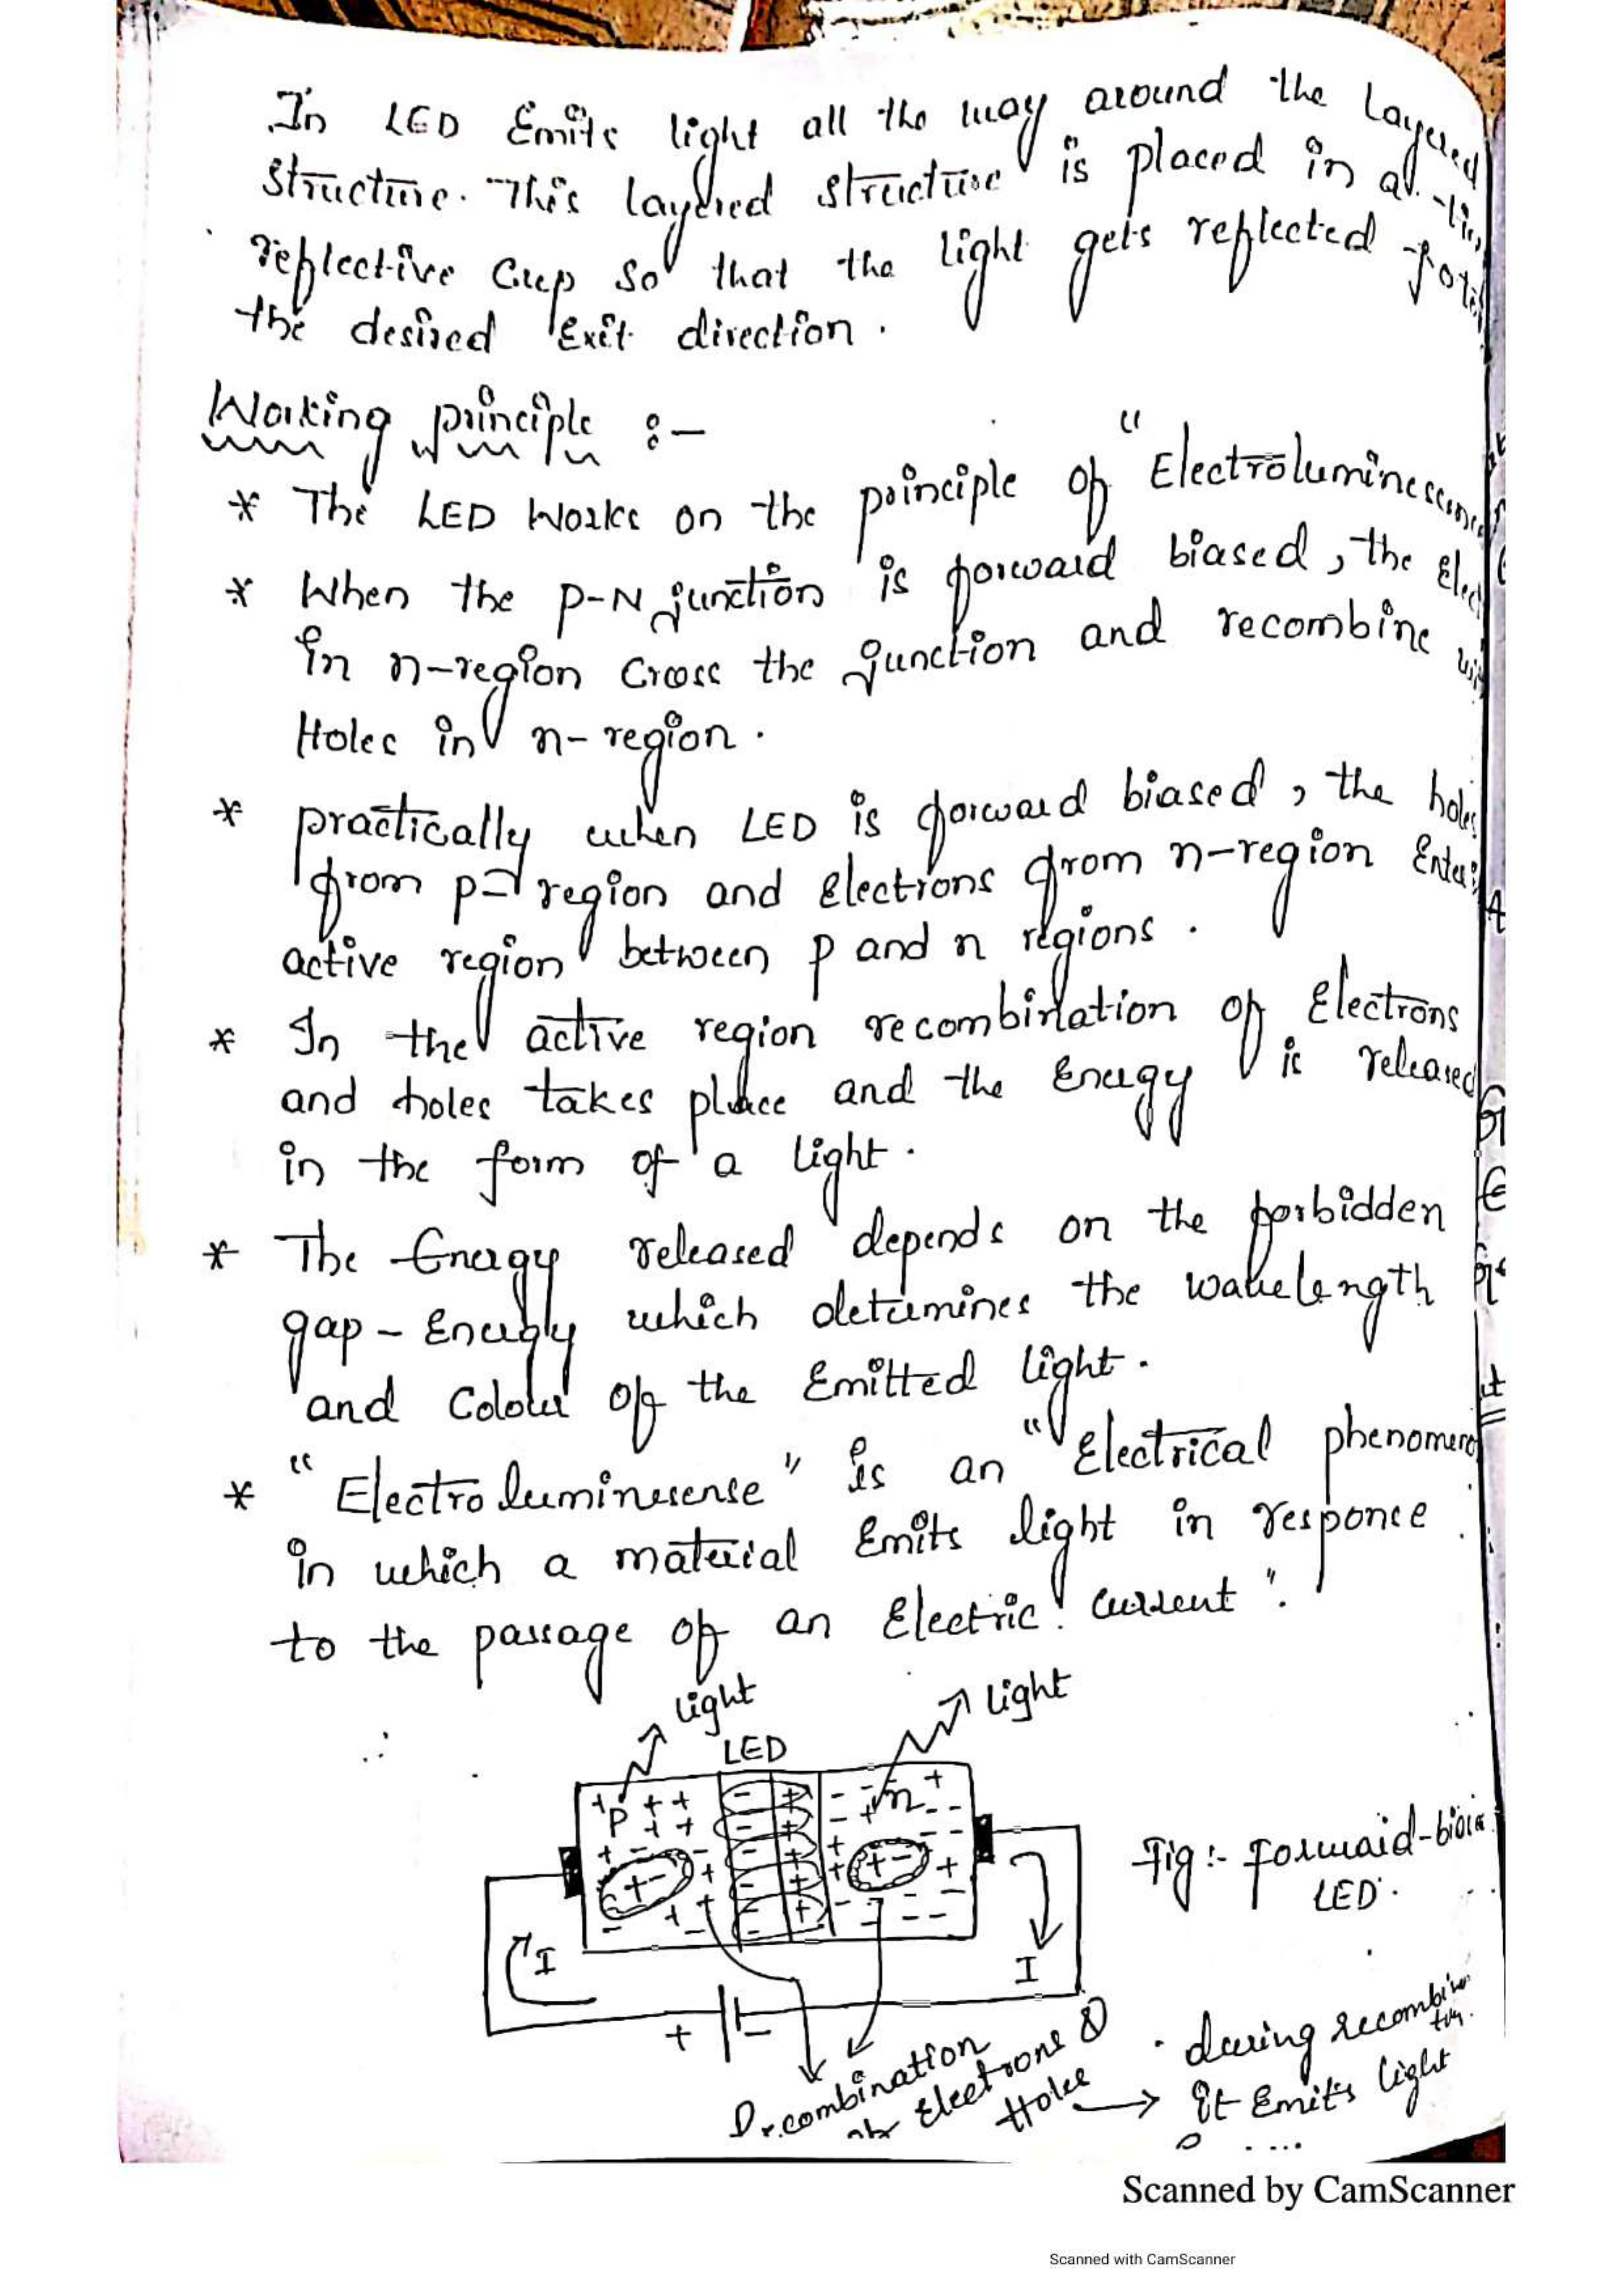 In LED Emits light all the way around the Layered
structure. This layered structure is placed in a
reflective Cup so that the light gets reflected
the desired Exit direction.
Working principle :-
* The LED Works on the principle of "Electroluminescence
* When the P-N junction is forward biased, the Elec
in n-region Cross the junction and recombine
Holes in n-region.
* practically when LED is forward biased, the holes
from p-region and Electrons from n-region Enter
active region between p and n regions.
* In the active region recombination of Electrons
and holes takes place and the Energy is released
in the form of a light.
* The Energy released depends on the forbidden
gap - Energy which determines the wavelength
and Colour of the Emitted light.
* "Electroluminesense" is an "Electrical phenomeno
in which a material Emits light in responce
to the passage of an Electric current".
light
light
LED
P
n
I
I
+
-
Fig :- Forward-bias
LED.
Recombination
of Electrons &
Holes → during recombination
it Emits light
Scanned by CamScanner
Scanned with CamScanner